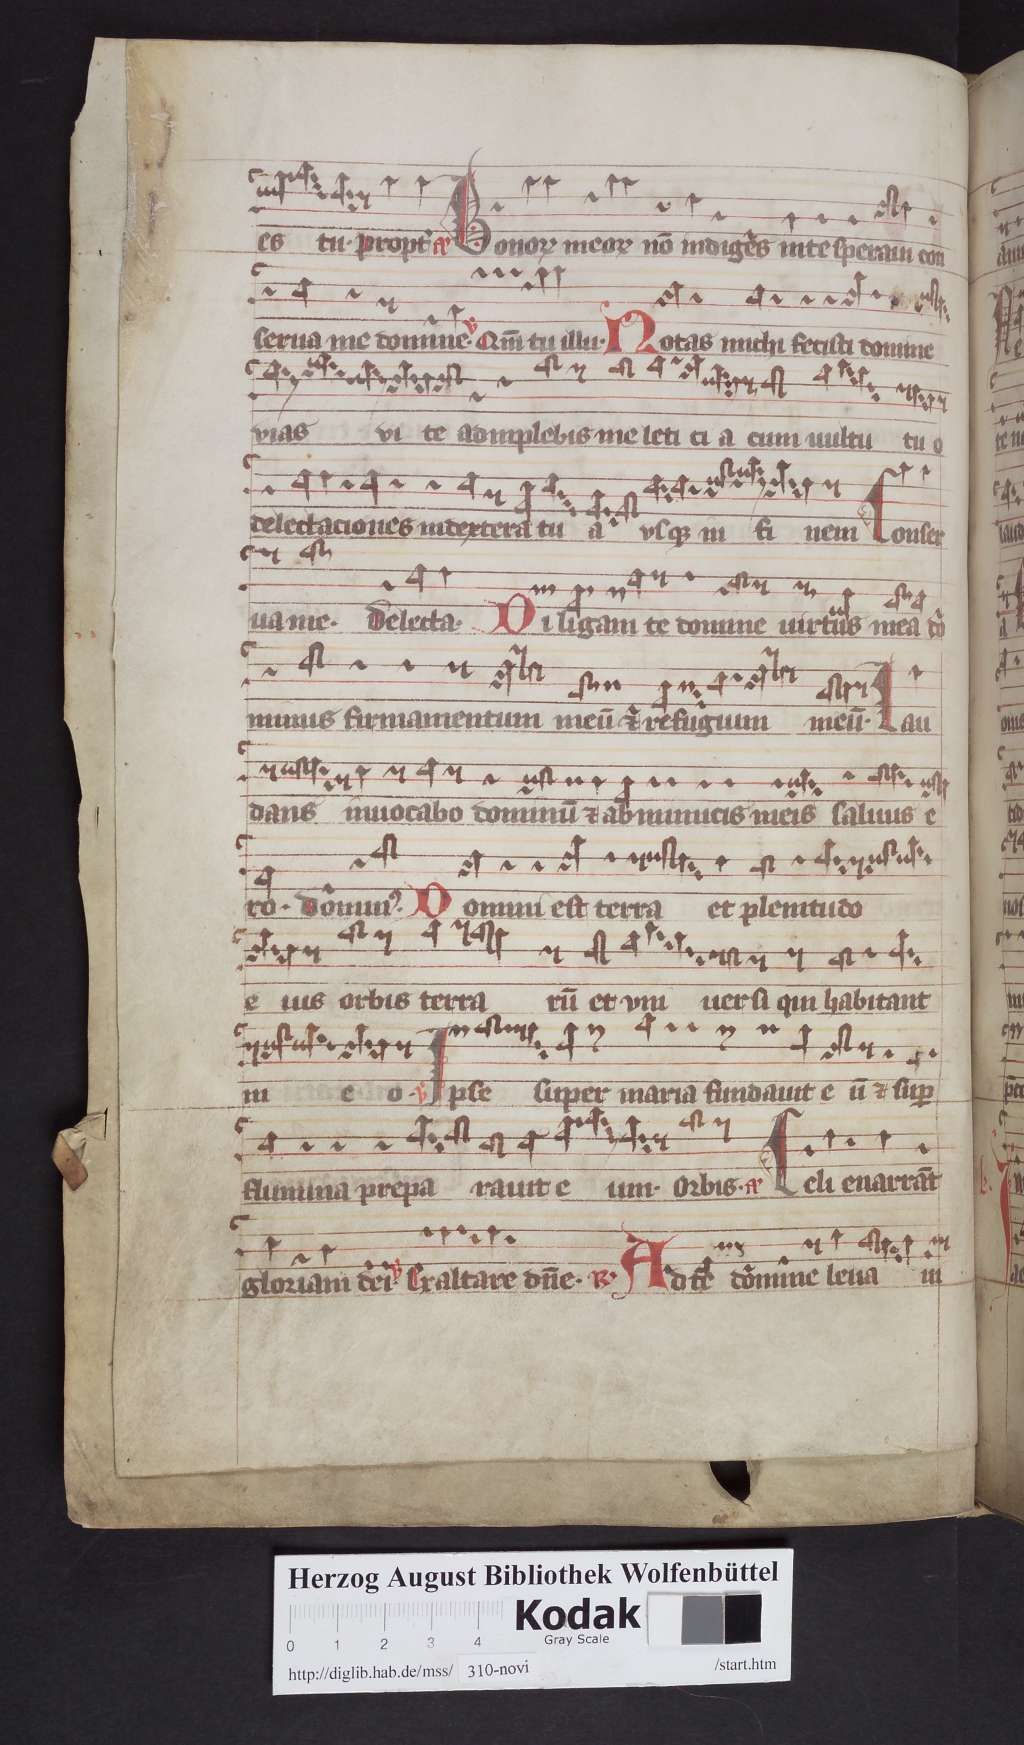 es tu propt̄ Bonoꝝ meoꝝ nō indiges in te speram con
serua me domine Qm̄ tu illu. Notas michi fecisti domine
vias vi te adinplebis me leti ci a cum uultu tu o
delectaciones in dextera tu a vsqꝫ in fi nem Conser
ua me. Delecta. Diligam te domine uirtus mea do
minus firmamentum meū ⁊ refugium meū. Lau
dans inuocabo dominū ⁊ ab inimicis meis saluus e
ro. Domin⁹. Domini est terra et plenitudo
e ius orbis terra rū et vni uersi qui habitant
in e o Ipse super maria fundauit e ū ⁊ sup
flumina prepa rauit e um. Orbis. Celi enarrāt
gloriam dei Exaltare dn̄e. R. Ad te domine leua ui
Herzog August Bibliothek Wolfenbüttel
Kodak
Gray Scale
0 1 2 3 4
http://diglib.hab.de/mss/ 310-novi /start.htm